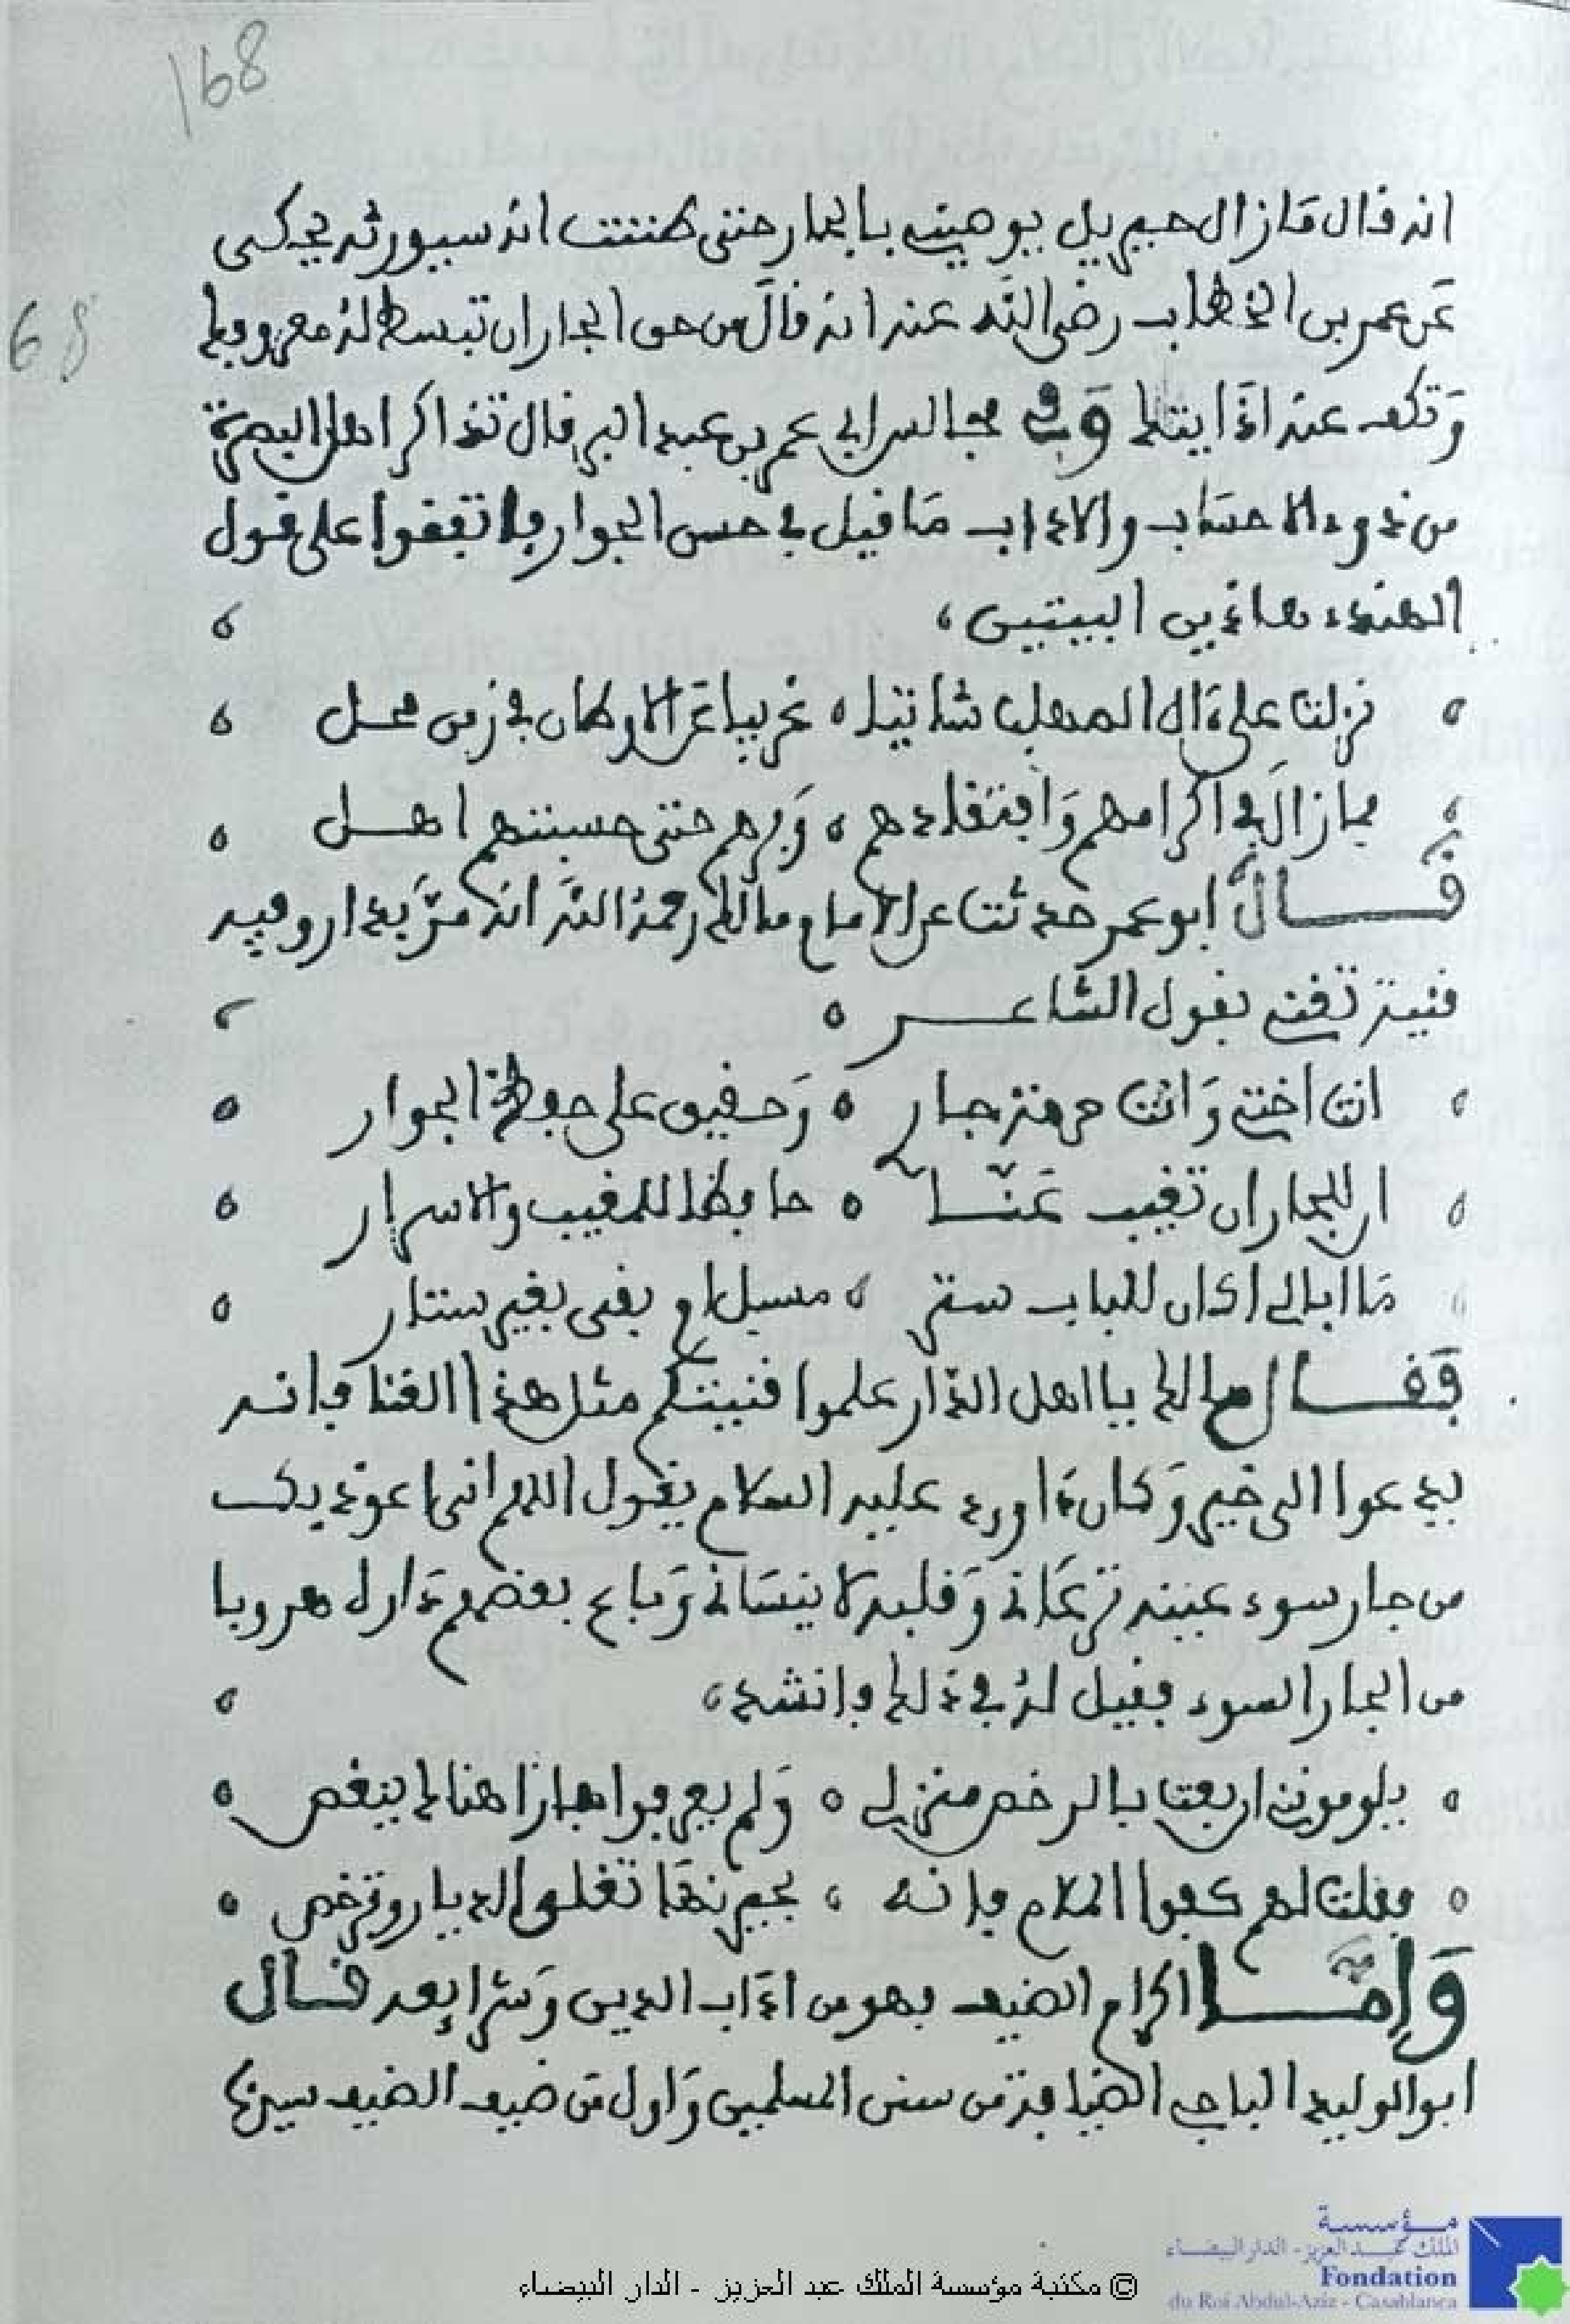 168
68
انه قال مازال جبريل يوصيني بالجار حتى ظننت انه سيورثه يحكى
عن عمر بن الخطاب رضي الله عنه انه قال من حق الجار ان تبسط له معروفك
وتكف عنه اذايتك وفي مجالس ابي عمر بن عبد البر قال تذاكر اهل البصرة
من ذوي الاحساب والاداب ما قيل في حسن الجوار فاتفقوا على قول
هاذين البيتين
نزلت على ءال المهلب شاتيا ه غريبا عن الاوطان في زمن محل
فمازال بي اكرامهم وافتقادهم ه وبرهم حتى حسبتهم اهل
قال ابو عمر حدثت عن الامام مالك رحمه الله انه مر بدار وفيه
قينة تغني بقول الشاعر ه
انت اختي وانت حرمة جار ه وحقيق على حفظ الجوار
ان للجار ان تغيب عنا ه حافظا للمغيب والاسرار
ما ابالي اكان للباب ستر ه مسبل ام بقى بغير ستار
فقال مالك يا اهل الدار علموا قينتكم مثل هذا الغنا فانه
يدعوا الى خير وكان داورد عليه السلام يقول اللهم اني اعوذ بك
من جار سوء عينه ترعاني وقلبه لا ينساني وباع بعضهم دار له هروبا
من الجار السوء فقيل له في ذلك فانشد
يلومونني ان بعت بالرخص منزلي ه ولم يعرفوا جارا هناك ينغص
فقلت لهم كفوا الملام فانه ، بجيرنها تغلى الديار وترخص
واما اكرام الضيف فهو من اداب الدين وشرايعه قال
ابو الوليد الباجي الضيافة من سنن المسلمين واول من ضيف الضيف سيدنا
مؤسسة
الملك عبد العزيز - الدار البيضاء
Fondation
du Roi Abdul-Aziz - Casablanca
© مكتبة مؤسسة الملك عبد العزيز - الدار البيضاء